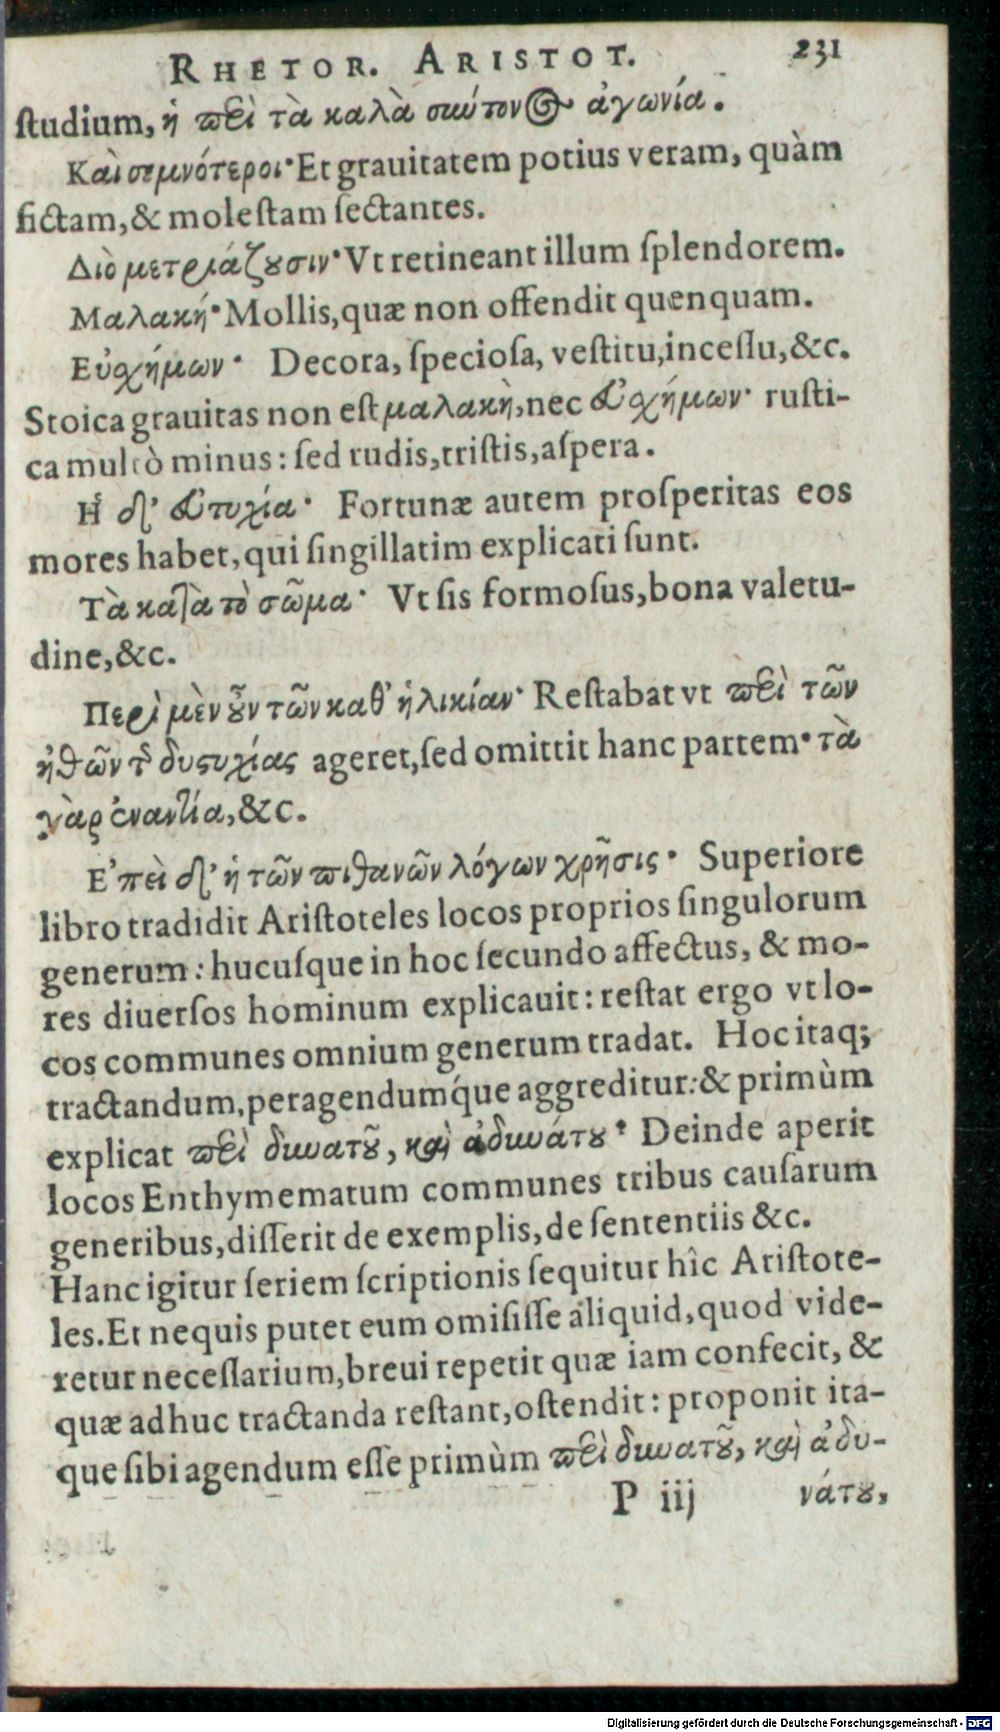 RHETOR. ARISTOT. 231
ſtudium, ἡ περὶ τὰ καλὰ σύντονος ἀγωνία.
Καὶ σεμνότεροι· Et grauitatem potius veram, quàm
fictam, & moleſtam ſectantes.
Διὸ μετριάζουσιν· Vt retineant illum ſplendorem.
Μαλακή· Mollis, quæ non offendit quenquam.
Εὐσχήμων· Decora, ſpecioſa, veſtitu, inceſſu, &c.
Stoica grauitas non eſt μαλακὴ, nec εὐσχήμων· ruſti-
ca multò minus: ſed rudis, triſtis, aſpera.
Ἡ δ' εὐτυχία· Fortunæ autem proſperitas eos
mores habet, qui ſingillatim explicati ſunt.
Τὰ κατὰ τὸ σῶμα· Vt ſis formoſus, bona valetu-
dine, &c.
Περὶ μὲν οὖν τῶν καθ' ἡλικίαν· Reſtabat vt περὶ τῶν
ἠθῶν τῆς δυστυχίας ageret, ſed omittit hanc partem· τὰ
γὰρ ἐναντία, &c.
Ἐπεὶ δ' ἡ τῶν πιθανῶν λόγων χρῆσις· Superiore
libro tradidit Ariſtoteles locos proprios ſingulorum
generum: hucuſque in hoc ſecundo affectus, & mo-
res diuerſos hominum explicauit: reſtat ergo vt lo-
cos communes omnium generum tradat. Hoc itaq;
tractandum, peragendumq́ue aggreditur: & primùm
explicat περὶ δυνατοῦ, καὶ ἀδυνάτου· Deinde aperit
locos Enthymematum communes tribus cauſarum
generibus, diſſerit de exemplis, de ſententiis &c.
Hanc igitur ſeriem ſcriptionis ſequitur hîc Ariſtote-
les. Et nequis putet eum omiſiſſe aliquid, quod vide-
retur neceſſarium, breui repetit quæ iam confecit, &
quæ adhuc tractanda reſtant, oſtendit: proponit ita-
que ſibi agendum eſſe primùm περὶ δυνατοῦ, καὶ ἀδυ-
P iij νάτου,
Digitalisierung gefördert durch die Deutsche Forschungsgemeinschaft - DFG